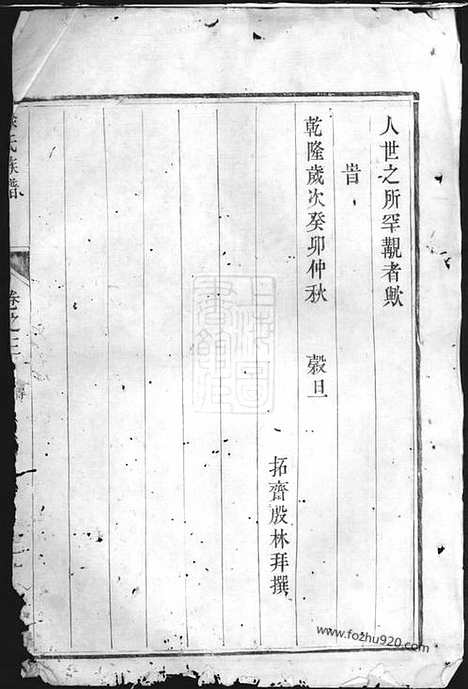 人世之所罕覯者歟
旹
乾隆歲次癸卯仲秋 穀旦
拓齋殷林拜撰
氏族譜
卷之三
www.fozhu920.com